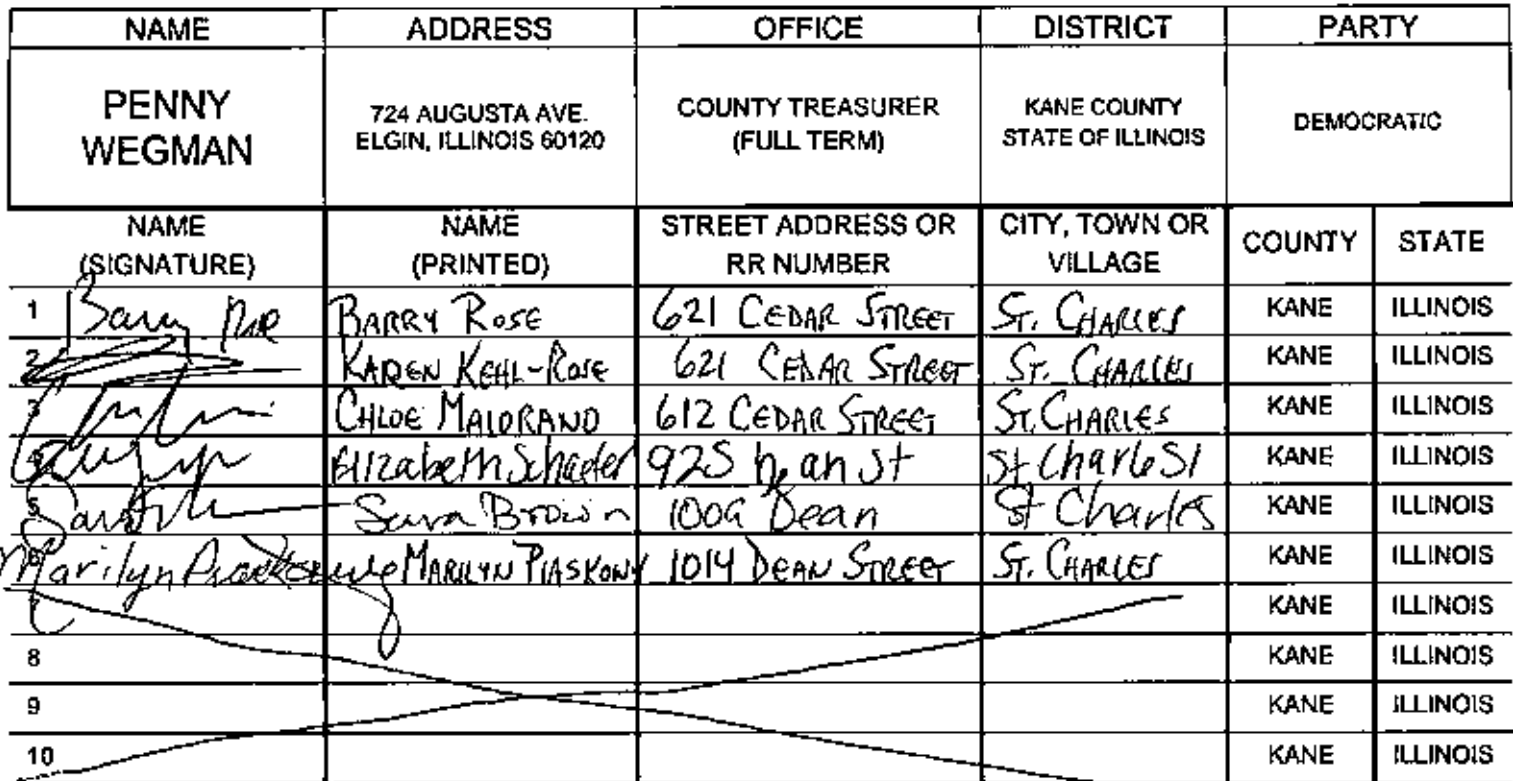 NAME ADDRESS OFFICE DISTRICT PARTY
PENNY WEGMAN 724 AUGUSTA AVE. ELGIN, ILLINOIS 60120 COUNTY TREASURER (FULL TERM) KANE COUNTY STATE OF ILLINOIS DEMOCRATIC
NAME (SIGNATURE) NAME (PRINTED) STREET ADDRESS OR RR NUMBER CITY, TOWN OR VILLAGE COUNTY STATE
1 Barry BARRY ROSE 621 CEDAR STREET ST. CHARLES KANE ILLINOIS
2 KAREN KEHL-ROSE 621 CEDAR STREET ST. CHARLES KANE ILLINOIS
3 CHLOE MAIORANO 612 CEDAR STREET ST. CHARLES KANE ILLINOIS
4 Elizabeth Schaefer 925 St St Charles KANE ILLINOIS
5 Sara Brown Dean St Charles KANE ILLINOIS
6 Marilyn MARILYN PIASKOWY 1014 DEAN STREET ST. CHARLES KANE ILLINOIS
7 KANE ILLINOIS
8 KANE ILLINOIS
9 KANE ILLINOIS
10 KANE ILLINOIS